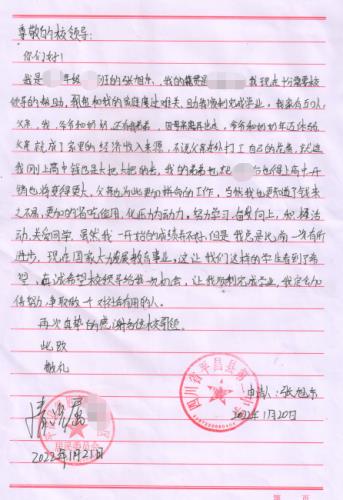 尊敬的校领导:
你们好!
我是 年级 班的张旭东,我的籍贯是 我现在十分需要校
领导的救助,帮助和我的家庭度过难关,助我顺利完成学业,我家有五口人
父亲,我,爷爷和奶奶,还有弟弟,母亲离异出走,爷爷和奶奶年迈体弱
父亲就成了家里的经济收入来源,不说父亲外出打工自己的花费,就连
我刚上高中钱也是大把大把的丢,我的弟弟也在 也得上高中开
销也将变得更大,父亲也为此更加拼命的工作,当然我也更知道了钱来
之不易,更加的省吃俭用,化压力为动力,努力学习,奋发向上,积极活
动,关爱同学,虽然我一开始的成绩有不好,但是我总是比前一次有所
进步,现在国家大力发展教育事业,这让我们这样的学生看到了希
望,真诚希望校领导给我一次机会,让我顺利完成学业,我定会加
倍努力,争取做一个对社会有用的人。
再次真挚的感谢各位校领导。
此致
敬礼
申请人:张旭东
2022年1月20日
四川省平昌县第
情况属
村民委员会
2022年1月21日
第 页